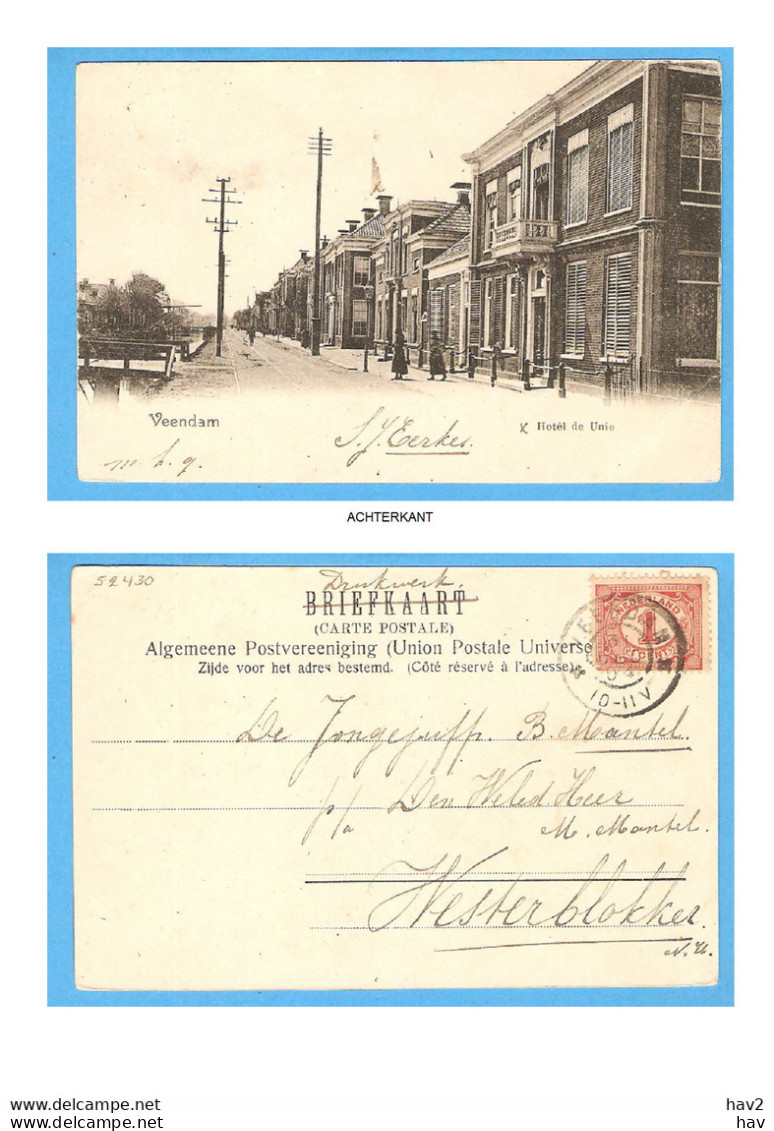 Veendam
S. J. Eerkes.
x Hotêl de Unie
m. h. g.
ACHTERKANT
52430
Drukwerk.
BRIEFKAART
(CARTE POSTALE)
Algemeene Postvereeniging (Union Postale Universe
Zijde voor het adres bestemd. (Côté réservé à l'adresse)
NEDERLAND
1
CENT
10-11V
De Jongejuffr. B. Mantel.
p/a Den Weled. Heer
M. Mantel.
Westerblokker
N. H.
hav2
hav